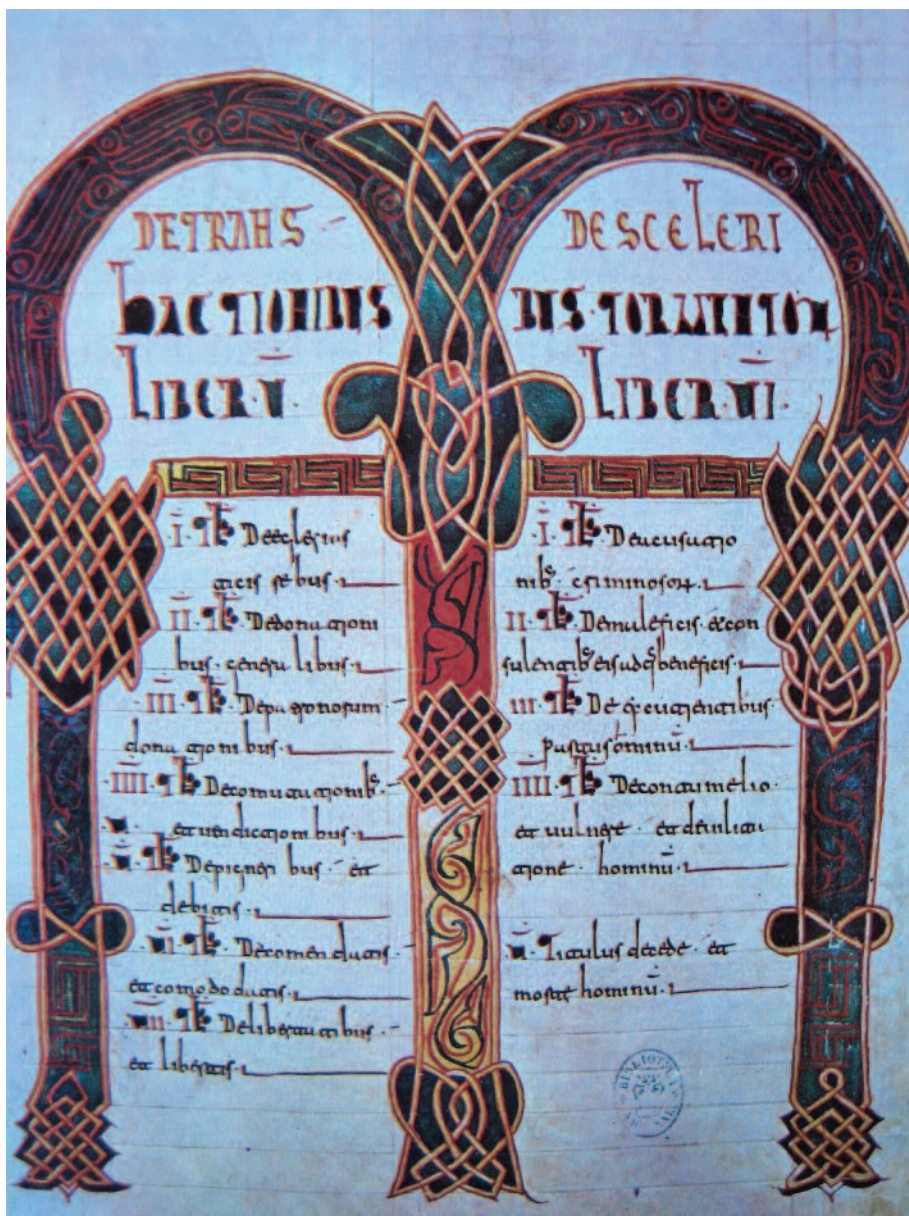 DETRAHS
BACTIONIBUS
LIBER V
I TL De eclesias
ticis rebus
II TL De donationi
bus generalibus
III TL De patronorum
donationibus
IIII TL De comutationib
et uendictionibus
V TL De pigneribus et
debitis
VI TL De comendatis
et comodo datis
VII TL De libertatibus
et libertis
DESCELERI
BUS TORMENTOR
LIBER VI
I TL De acusatio
nib criminosor
II TL De maleficis et con
sulentib eis adq beneficis
III TL De
partus ominu
IIII TL De contumelio
et uulnere et
tione hominu
V Titulus de cede et
morte hominu